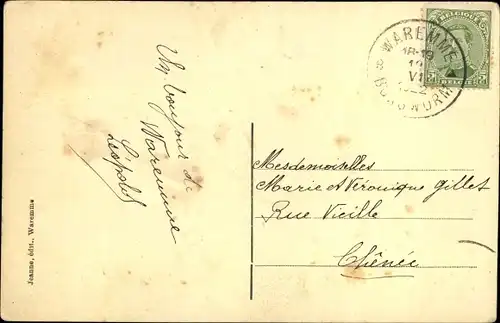 Un bonjour de
Waremme
Léopold
Jeanne, édit., Waremme
WAREMME
18-19
VI
1922
BORGWORM
BELGIQUE
BELGIË
Mesdemoiselles
Marie et Véronique Gillet
Rue Vieille
Chênée